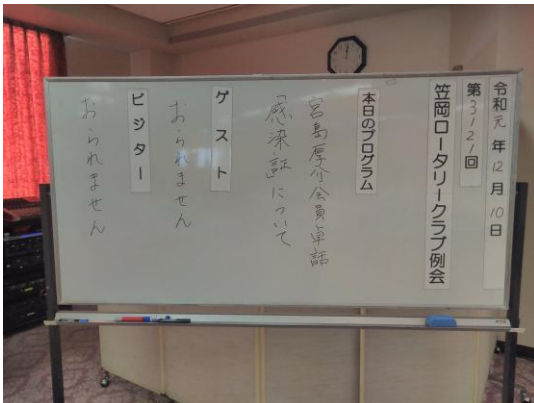 令和元年12月10日
第3121回
笠岡ロータリークラブ例会
本日のプログラム
宮島厚介会員卓話
「感染症」について
ゲスト
おられません
ビジター
おられません